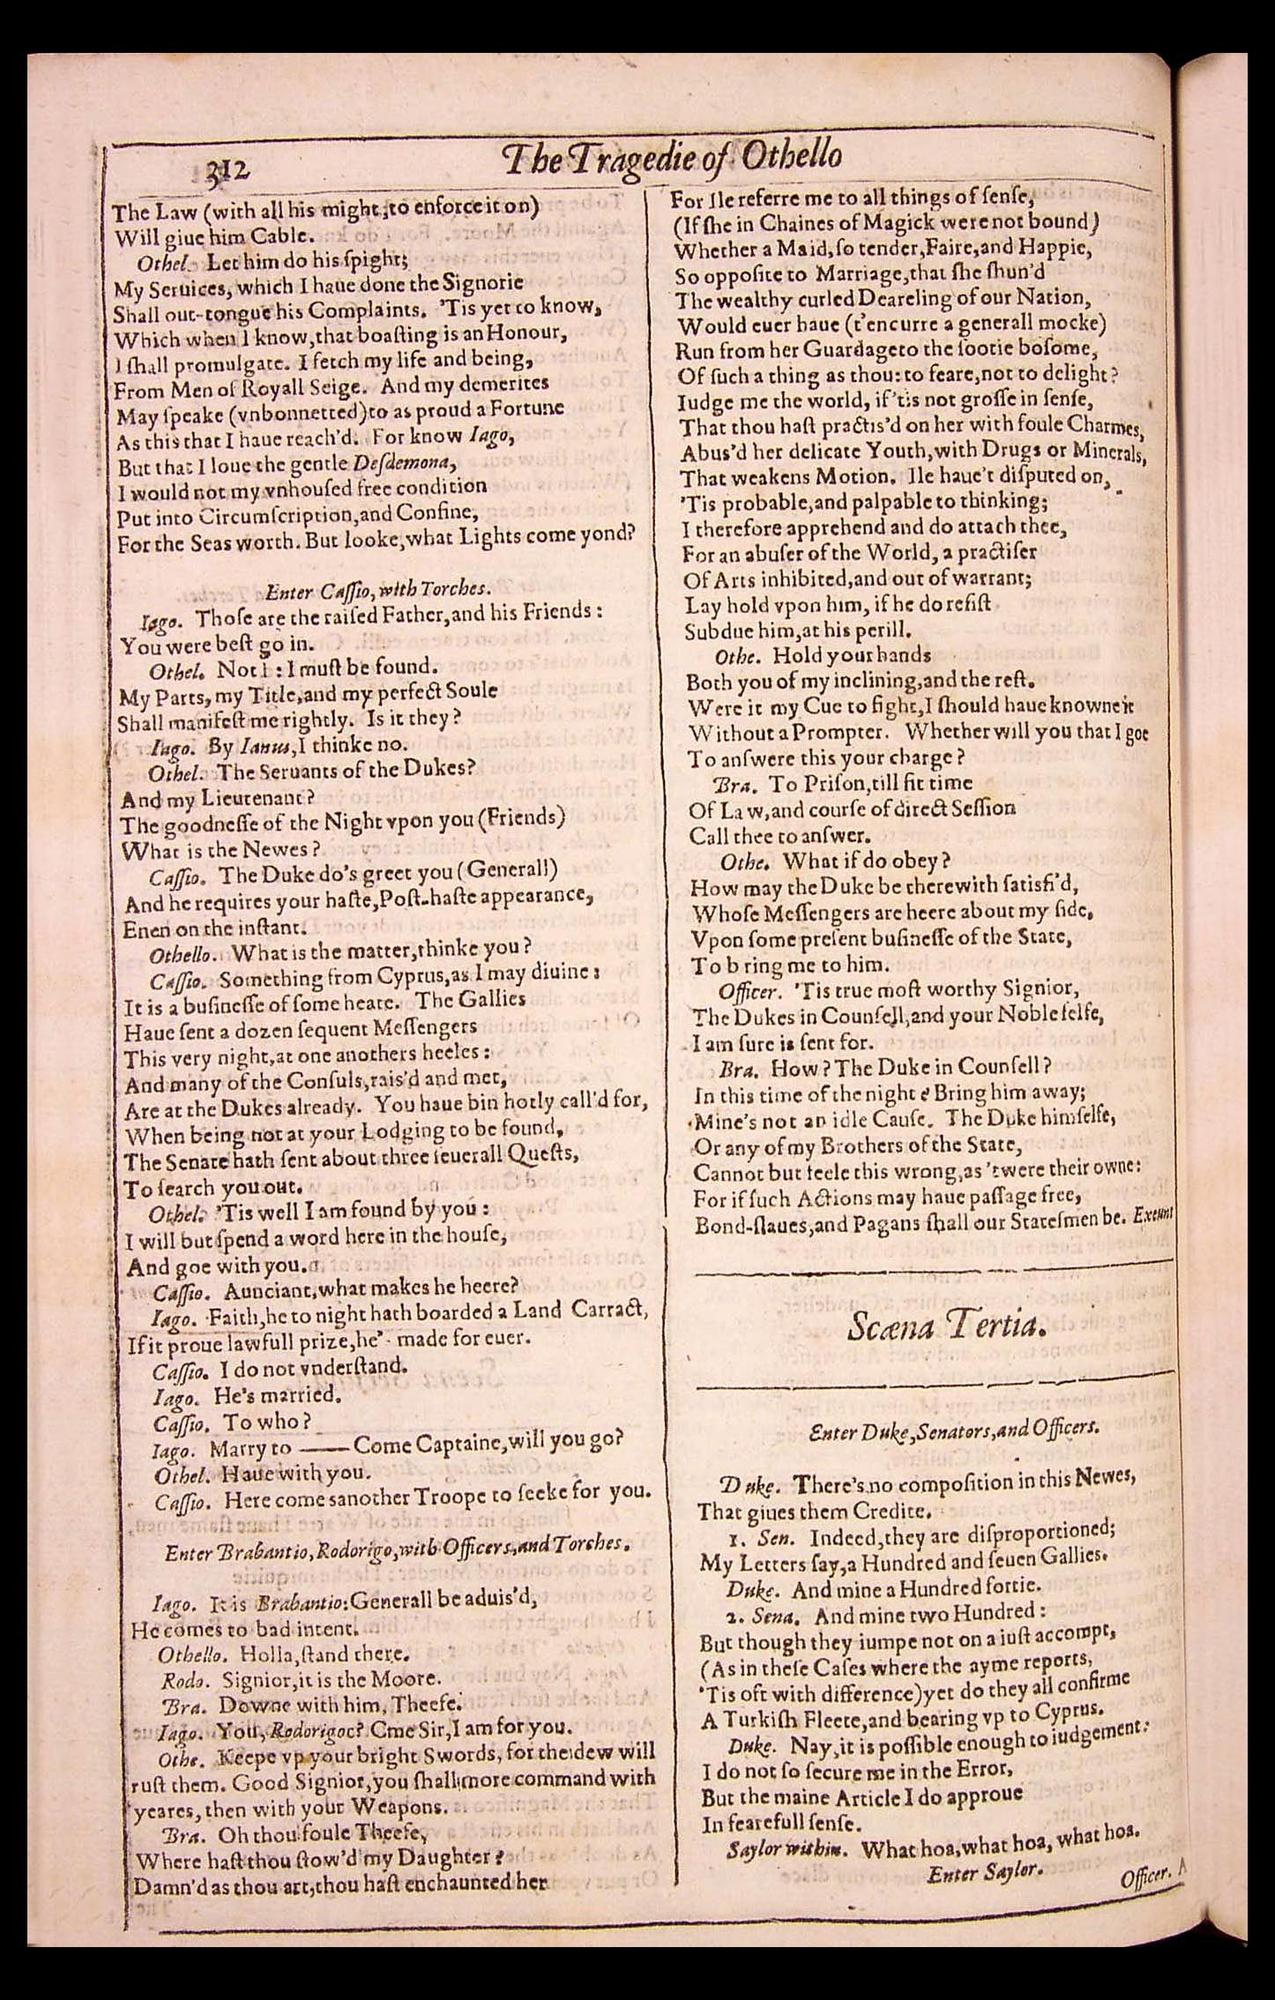 312
The Tragedie of Othello
The Law (with all his might, to enforce it on)
Will giue him Cable.
Othel. Let him do his ſpight;
My Seruices, which I haue done the Signorie
Shall out-tongue his Complaints. 'Tis yet to know,
Which when I know, that boaſting is an Honour,
I ſhall promulgate. I fetch my life and being,
From Men of Royall Seige. And my demerites
May ſpeake (vnbonnetted) to as proud a Fortune
As this that I haue reach'd. For know Iago,
But that I loue the gentle Deſdemona,
I would not my vnhouſed free condition
Put into Circumſcription, and Confine,
For the Seas worth. But looke, what Lights come yond?
Enter Caſſio, with Torches.
Iago. Thoſe are the raiſed Father, and his Friends:
You were beſt go in.
Othel. Not I: I muſt be found.
My Parts, my Title, and my perfect Soule
Shall manifeſt me rightly. Is it they?
Iago. By Ianus, I thinke no.
Othel. The Seruants of the Dukes?
And my Lieutenant?
The goodneſſe of the Night vpon you (Friends)
What is the Newes?
Caſſio. The Duke do's greet you (Generall)
And he requires your haſte, Poſt-haſte appearance,
Enen on the inſtant.
Othello. What is the matter, thinke you?
Caſſio. Something from Cyprus, as I may diuine:
It is a buſineſſe of ſome heate. The Gallies
Haue ſent a dozen ſequent Meſſengers
This very night, at one anothers heeles:
And many of the Conſuls, rais'd and met,
Are at the Dukes already. You haue bin hotly call'd for,
When being not at your Lodging to be found,
The Senate hath ſent about three ſeuerall Queſts,
To ſearch you out.
Othel. 'Tis well I am found by you:
I will but ſpend a word here in the houſe,
And goe with you.
Caſſio. Aunciant, what makes he heere?
Iago. Faith, he to night hath boarded a Land Carract,
If it proue lawfull prize, he' made for euer.
Caſſio. I do not vnderſtand.
Iago. He's married.
Caſſio. To who?
Iago. Marry to —— Come Captaine, will you go?
Othel. Haue with you.
Caſſio. Here come sanother Troope to ſeeke for you.
Enter Brabantio, Rodorigo, with Officers, and Torches.
Iago. It is Brabantio: Generall be aduis'd,
He comes to bad intent.
Othello. Holla, ſtand there.
Rodo. Signior, it is the Moore.
Bra. Downe with him, Theefe.
Iago. You, Rodorigoc? Cme Sir, I am for you.
Othe. Keepe vp your bright Swords, for the dew will
ruſt them. Good Signior, you ſhall more command with
yeares, then with your Weapons.
Bra. Oh thou foule Theefe,
Where haſt thou ſtow'd my Daughter?
Damn'd as thou art, thou haſt enchaunted her
For Ile referre me to all things of ſenſe,
(If ſhe in Chaines of Magick were not bound)
Whether a Maid, ſo tender, Faire, and Happie,
So oppoſite to Marriage, that ſhe ſhun'd
The wealthy curled Deareling of our Nation,
Would euer haue (t'encurre a generall mocke)
Run from her Guardageto the ſootie boſome,
Of ſuch a thing as thou: to feare, not to delight?
Iudge me the world, if 'tis not groſſe in ſenſe,
That thou haſt practis'd on her with foule Charmes,
Abus'd her delicate Youth, with Drugs or Minerals,
That weakens Motion. Ile haue't diſputed on,
'Tis probable, and palpable to thinking;
I therefore apprehend and do attach thee,
For an abuſer of the World, a practiſer
Of Arts inhibited, and out of warrant;
Lay hold vpon him, if he do reſiſt
Subdue him, at his perill.
Othe. Hold your hands
Both you of my inclining, and the reſt.
Were it my Cue to fight, I ſhould haue knowne it
Without a Prompter. Whether will you that I goe
To anſwere this your charge?
Bra. To Priſon, till fit time
Of Law, and courſe of direct Seſſion
Call thee to anſwer.
Othe. What if do obey?
How may the Duke be therewith ſatisfi'd,
Whoſe Meſſengers are heere about my ſide,
Vpon ſome preſent buſineſſe of the State,
To b ring me to him.
Officer. 'Tis true moſt worthy Signior,
The Dukes in Counſell, and your Noble ſelfe,
I am ſure is ſent for.
Bra. How? The Duke in Counſell?
In this time of the night? Bring him away;
Mine's not an idle Cauſe. The Duke himſelfe,
Or any of my Brothers of the State,
Cannot but feele this wrong, as 'twere their owne:
For if ſuch Actions may haue paſſage free,
Bond-ſlaues, and Pagans ſhall our Stateſmen be. Exeunt
Scæna Tertia.
Enter Duke, Senators, and Officers.
Duke. There's no compoſition in this Newes,
That giues them Credite.
1. Sen. Indeed, they are diſproportioned;
My Letters ſay, a Hundred and ſeuen Gallies.
Duke. And mine a Hundred fortie.
2. Sena. And mine two Hundred:
But though they iumpe not on a iuſt accompt,
(As in theſe Caſes where the ayme reports,
'Tis oft with difference) yet do they all confirme
A Turkiſh Fleete, and bearing vp to Cyprus.
Duke. Nay, it is poſſible enough to iudgement:
I do not ſo ſecure me in the Error,
But the maine Article I do approue
In fearefull ſenſe.
Saylor within. What hoa, what hoa, what hoa.
Enter Saylor.
Officer. A